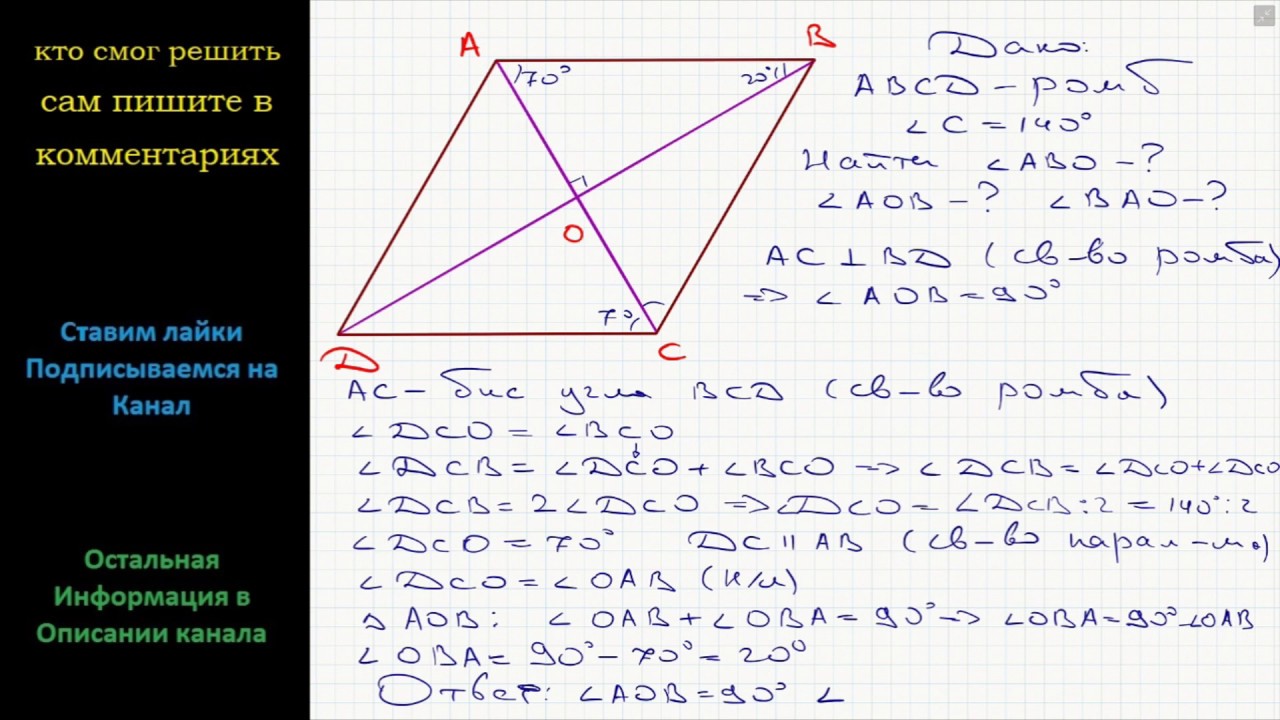 кто смог решить
сам пишите в
комментариях
Ставим лайки
Подписываемся на
Канал
Остальная
Информация в
Описании канала
A
B
70°
20°
O
70°
D
C
Дано:
ABCD – ромб
∠C = 140°
Найти ∠ABO – ?
∠AOB – ? ∠BAO – ?
AC ⊥ BD (св-во ромба)
=> ∠AOB = 90°
AC – бис угла BCD (св-во ромба)
∠DCO = ∠BCO
∠DCB = ∠DCO + ∠BCO => ∠DCB = ∠DCO + ∠DCO
∠DCB = 2∠DCO => ∠DCO = ∠DCB : 2 = 140° : 2
∠DCO = 70° DC ∥ AB (св-во парал-ма)
∠DCO = ∠OAB (н/л)
△AOB: ∠OAB + ∠OBA = 90° => ∠OBA = 90° - ∠OAB
∠OBA = 90° – 70° = 20°
Ответ: ∠AOB = 90° ∠